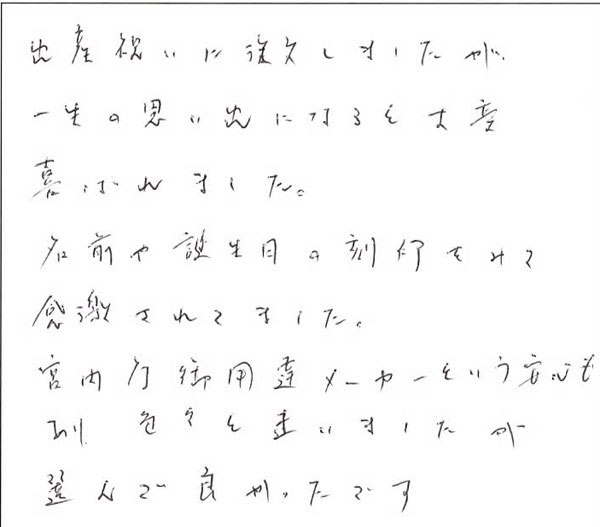 出産祝いに注文しましたが、
一生の思い出になると大変
喜ばれました。
名前や誕生日の刻印をみて
感激されてました。
宮内庁御用達メーカーという安心も
有り 色々と迷いましたが
選んで良かったです